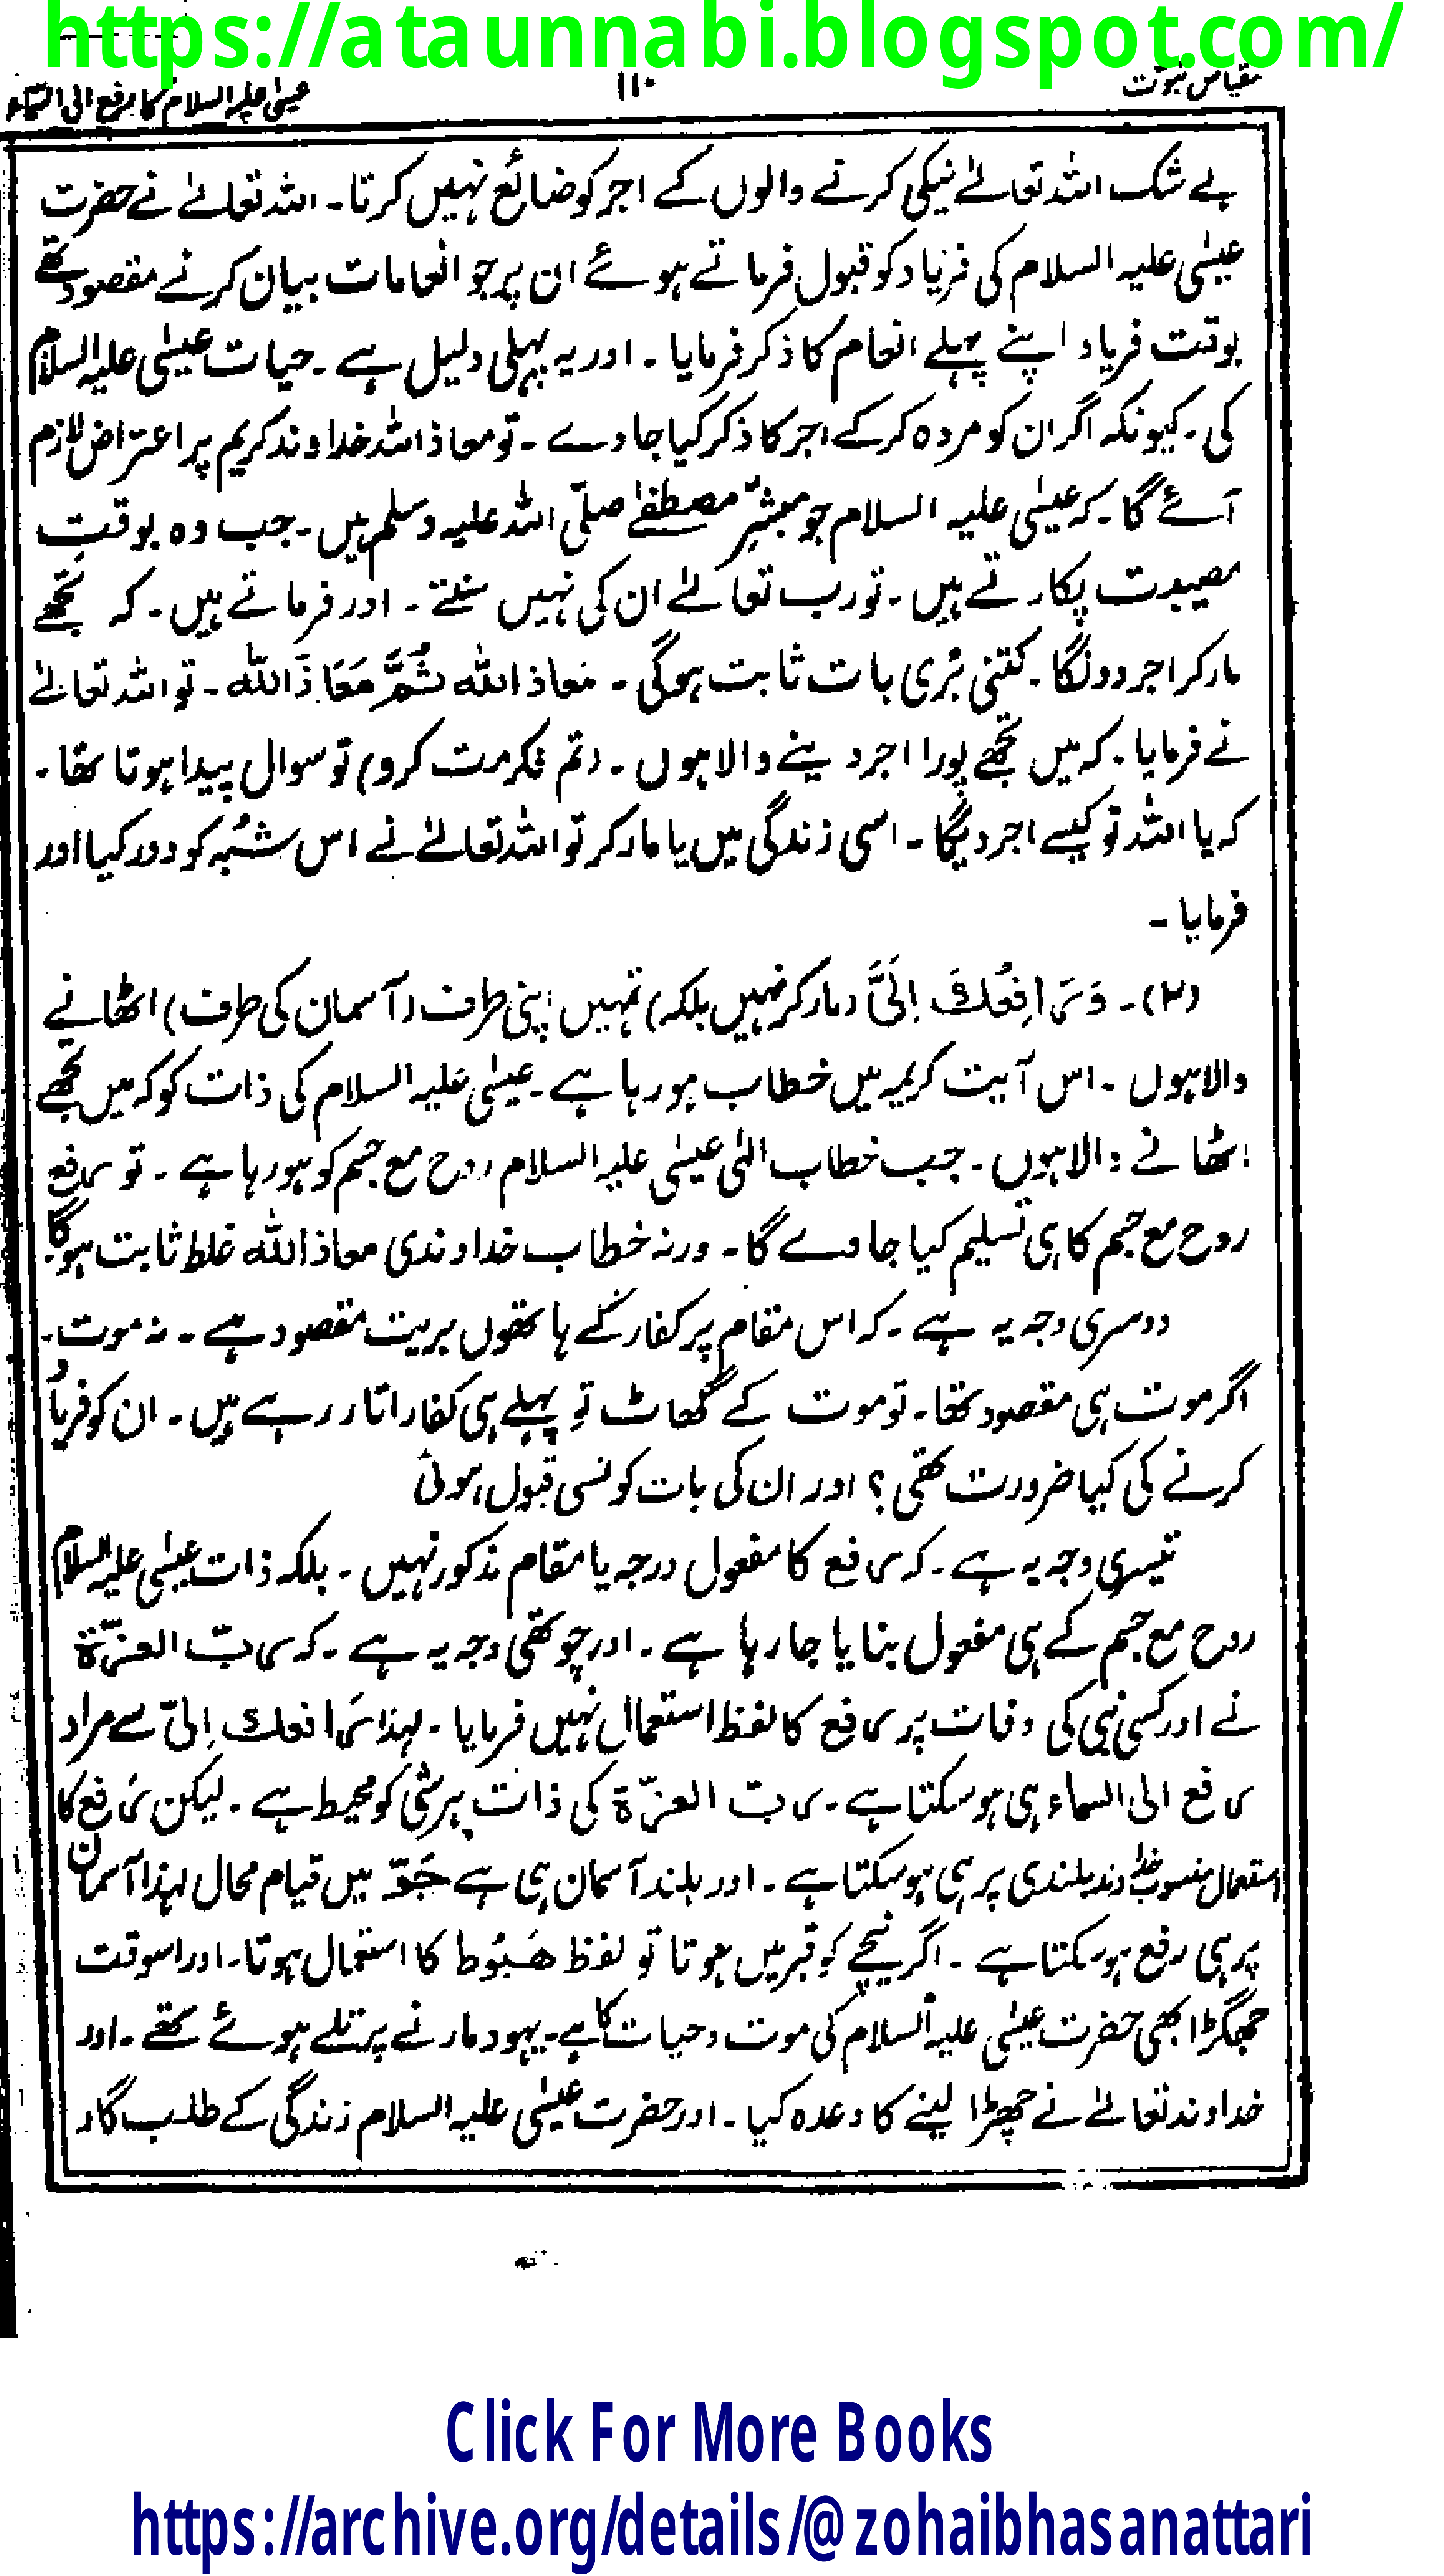 https://ataunnabi.blogspot.com/
مقیاس نبوّت ۱۱۰ عیسٰی علیہ السلام کا رفع الی السّماء
بے شک اللہ تعالےٰ نیکی کرنے والوں کے اجر کو ضائع نہیں کرتا۔ اللہ تعالےٰ نے حضرت
عیسٰی علیہ السلام کی فریاد کو قبول فرماتے ہوئے ان پر جو انعامات بیان کرنے مقصود تھے
بوقت فریاد اپنے پہلے انعام کا ذکر فرمایا ۔ اور یہ پہلی دلیل ہے ۔ حیات عیسٰی علیہ السلام
کی ۔ کیونکہ اگر ان کو مردہ کر کے اجر کا ذکر کیا جا وے ۔ تو معاذ اللہ خدا وند کریم پر اعتراض لازم
آئے گا ۔ کہ عیسٰی علیہ السلام جو مبشّرِ مصطفےٰ صلّی اللہ علیہ وسلم ہیں ۔ جب وہ بوقتِ
مصیبت پکارتے ہیں ۔ تو رب تعالےٰ ان کی نہیں سنتے ۔ اور فرماتے ہیں ۔ کہ تجھے
مار کر اجر دوں گا ۔ کتنی بُری بات ثابت ہوگی ۔ مَعاذ اللہ ثُمَّ مَعَاذَ اللہ ۔ تو اللہ تعالےٰ
نے فرمایا ۔ کہ میں تجھے پورا اجر دینے والا ہوں ۔ (تم فکر مت کرو) تو سوال پیدا ہوتا تھا ۔
کہ یا اللہ تو کیسے اجر دیگا ۔ اسی زندگی میں یا مار کر تو اللہ تعالےٰ نے اس شُبہ کو دور کیا اور
فرمایا ۔
(۲) ۔ وَرَافِعُكَ اِلَیَّ (مار کر نہیں بلکہ) تمہیں اپنی طرف (آسمان کی طرف) اٹھانے
والا ہوں ۔ اس آیت کریمہ میں خطاب ہو رہا ہے ۔ عیسٰی علیہ السلام کی ذات کو کہ میں تجھے
اٹھانے والا ہوں ۔ جب خطاب الٰہی عیسٰی علیہ السلام روح مع جسم کو ہو رہا ہے ۔ تو رفع
روح مع جسم کا ہی تسلیم کیا جاوے گا ۔ ورنہ خطاب خداوندی معاذ اللہ غلط ثابت ہوگا ۔
دوسری وجہ یہ ہے ۔ کہ اس مقام پر کفار کے ہاتھوں بریت مقصود ہے ۔ نہ موت ۔
اگر موت ہی مقصود تھا ۔ تو موت کے گھاٹ تو پہلے ہی کفار اتار رہے ہیں ۔ ان کو فریاد
کرنے کی کیا ضرورت تھی ؟ اور ان کی بات کونسی قبول ہوئی
تیسری وجہ یہ ہے ۔ کہ رفع کا مفعول درجہ یا مقام مذکور نہیں ۔ بلکہ ذات عیسٰی علیہ السلام
روح مع جسم کے ہی مفعول بنایا جا رہا ہے ۔ اور چوتھی وجہ یہ ہے ۔ کہ ربّ العزّۃ
نے اور کسی نبی کی وفات پر رفع کا لفظ استعمال نہیں فرمایا ۔ لہذا رَافعك اِلیّ سے مراد
رفع الی السماء ہی ہو سکتا ہے ۔ ربّ العزّۃ کی ذات ہر شئی کو محیط ہے ۔ لیکن رَفع کا
استعمال منسوب خداوند بلندی پر ہی ہو سکتا ہے ۔ اور بلند آسمان ہی ہے جَوّ میں قیام محال لہذا آسمان
پر ہی رفع ہو سکتا ہے ۔ اگر نیچے کو قبر میں ہوتا تو لفظ هَبُوط کا استعمال ہوتا ۔ اور اسوقت
جھگڑا بھی حضرت عیسٰی علیہ السلام کی موت و حیات کا ہے ۔ یہود مارنے پر تلے ہوئے تھے ۔ اور
خداوند تعالےٰ نے چھڑا لینے کا وعدہ کیا ۔ اور حضرت عیسٰی علیہ السلام زندگی کے طلب گار
Click For More Books
https://archive.org/details/@zohaibhasanattari